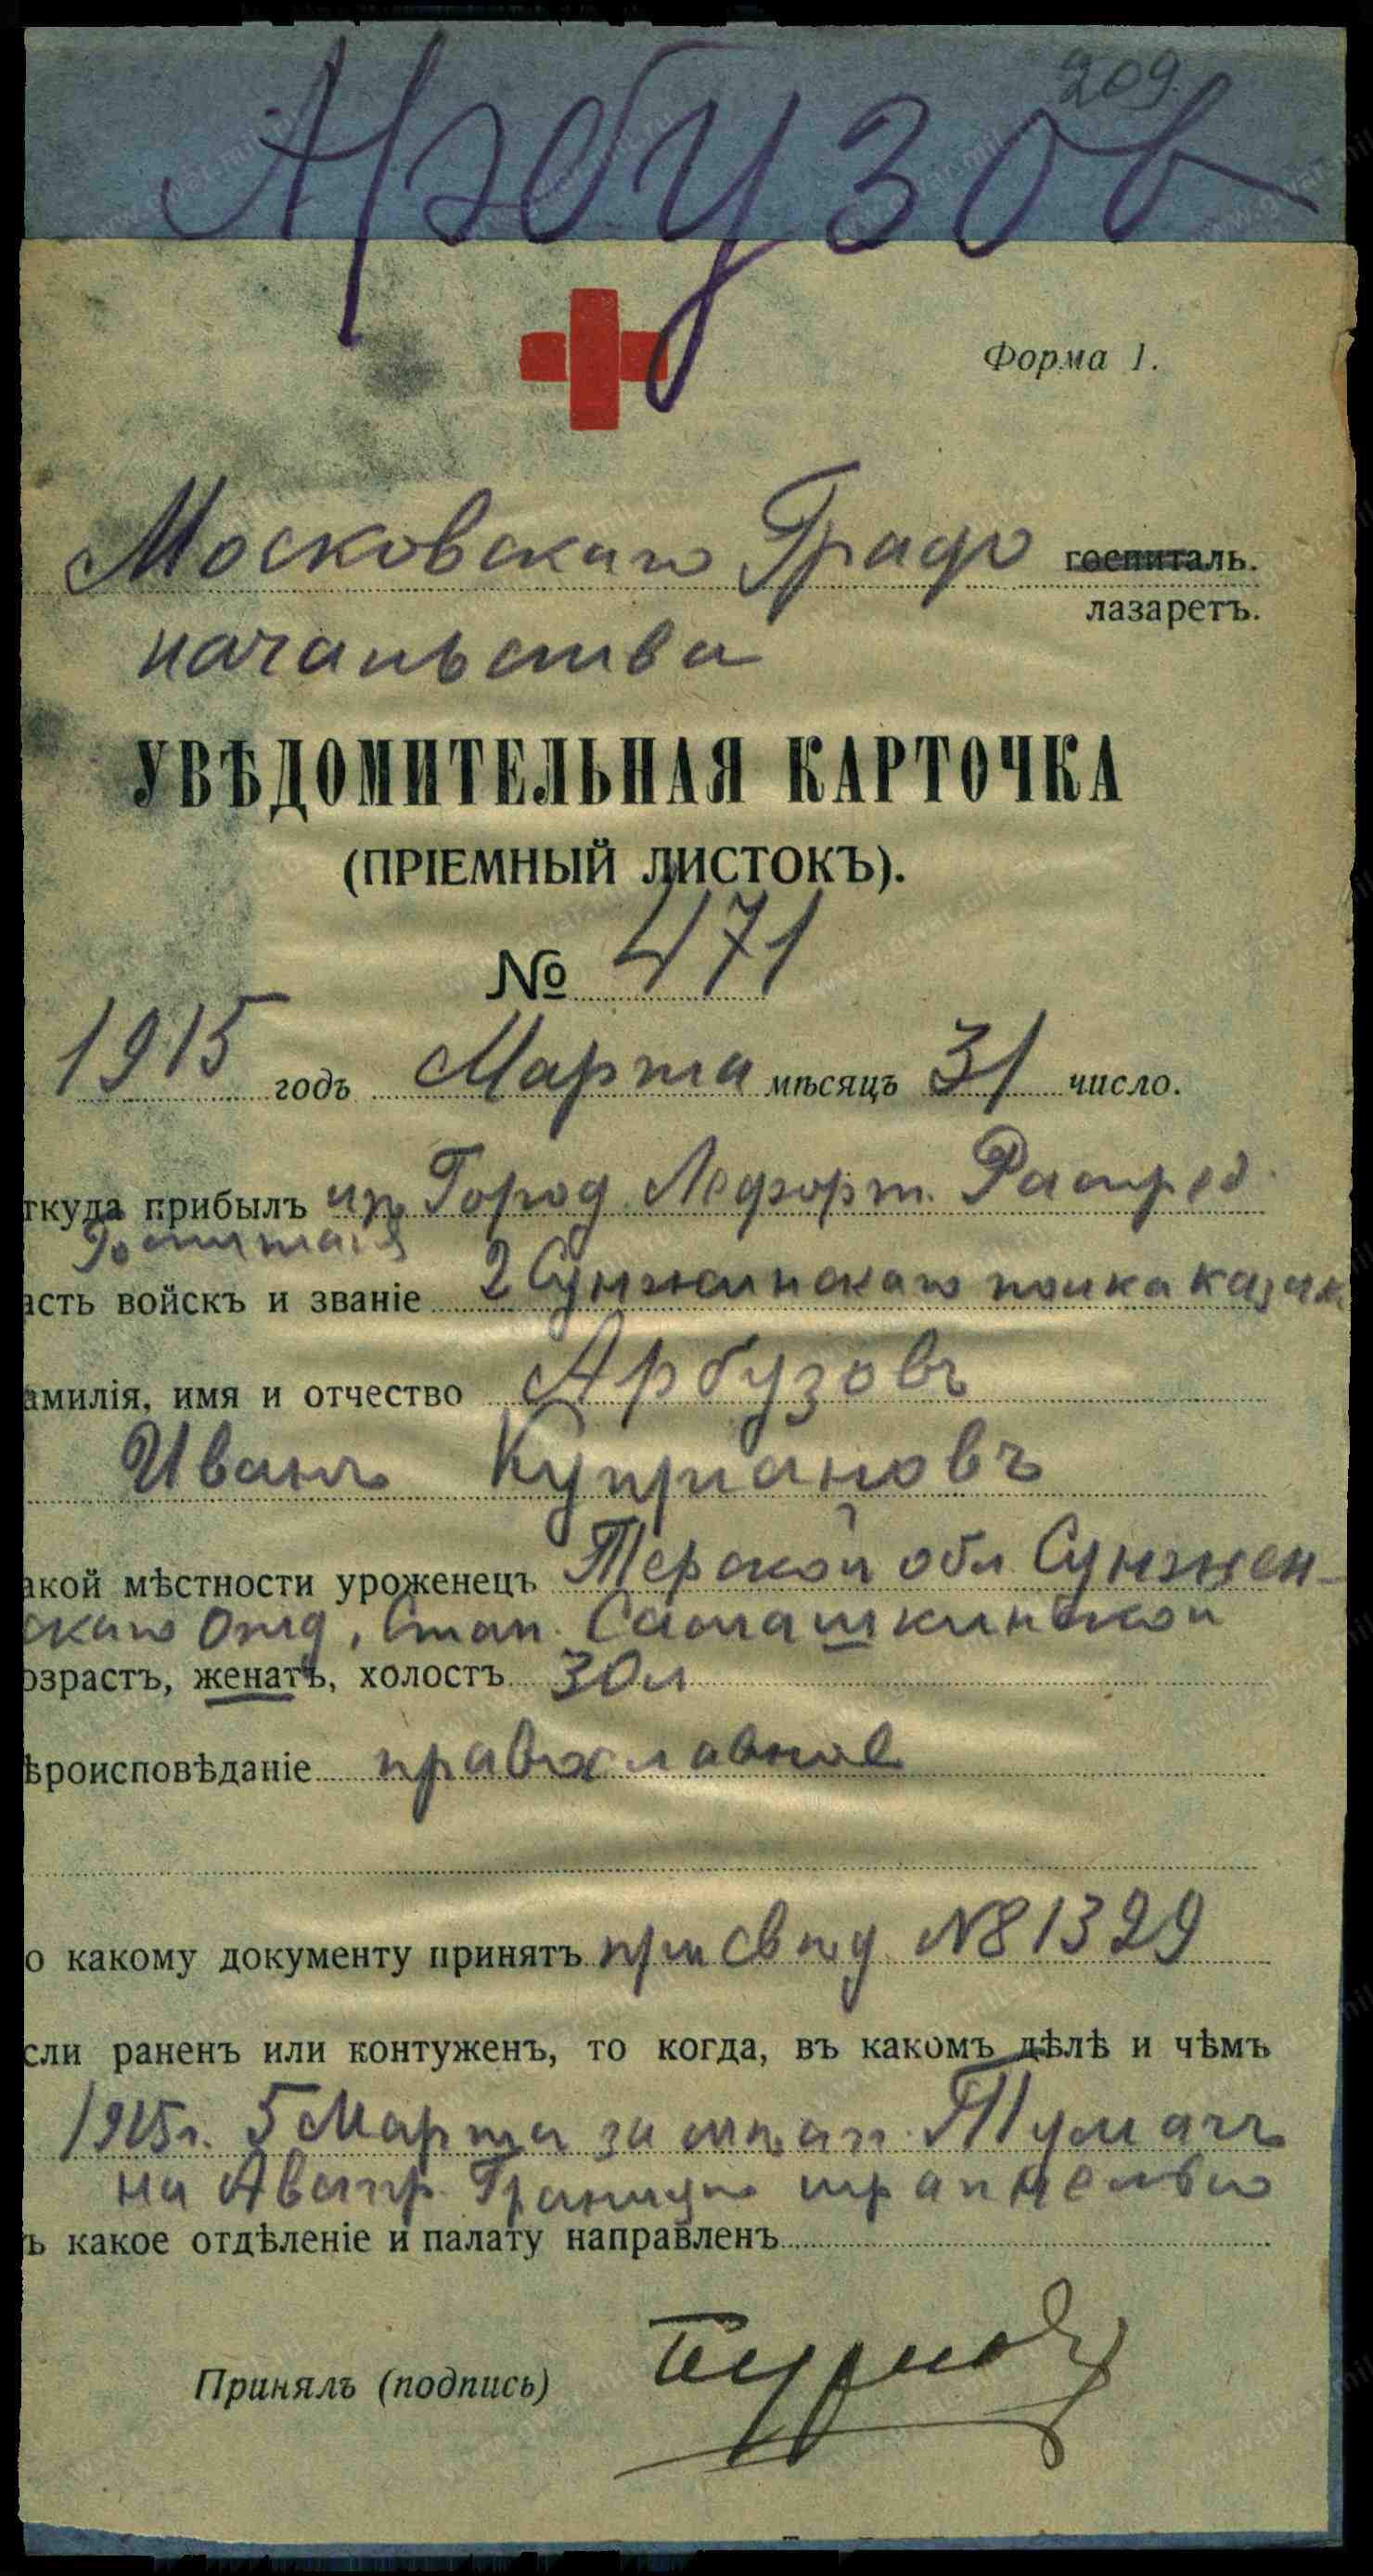 209.
Арбузов
Форма 1.
Московскаго Градо госпиталь.
лазаретъ.
начальства
УВѢДОМИТЕЛЬНАЯ КАРТОЧКА
(ПРІЕМНЫЙ ЛИСТОКЪ).
№ 471
1915 годъ Марта мѣсяцъ 31 число.
ткуда прибылъ из Город Лефорт. Распред.
Госпиталя
асть войскъ и званіе 2 Сунженскаго полка казак
амилія, имя и отчество Арбузовъ
Иванъ Купріановъ
акой мѣстности уроженецъ Терской обл Сунжен-
скаго Отд, Стан. Самашкинской
озрастъ, женатъ, холостъ 30 л
ѣроисповѣданіе православное
о какому документу принятъ при св №81329
сли раненъ или контуженъ, то когда, въ какомъ дѣлѣ и чѣмъ
1915г. 5 Марта за Тумачъ
на Австр. Границу шрапнелью
ъ какое отдѣленіе и палату направленъ
Принялъ (подпись)